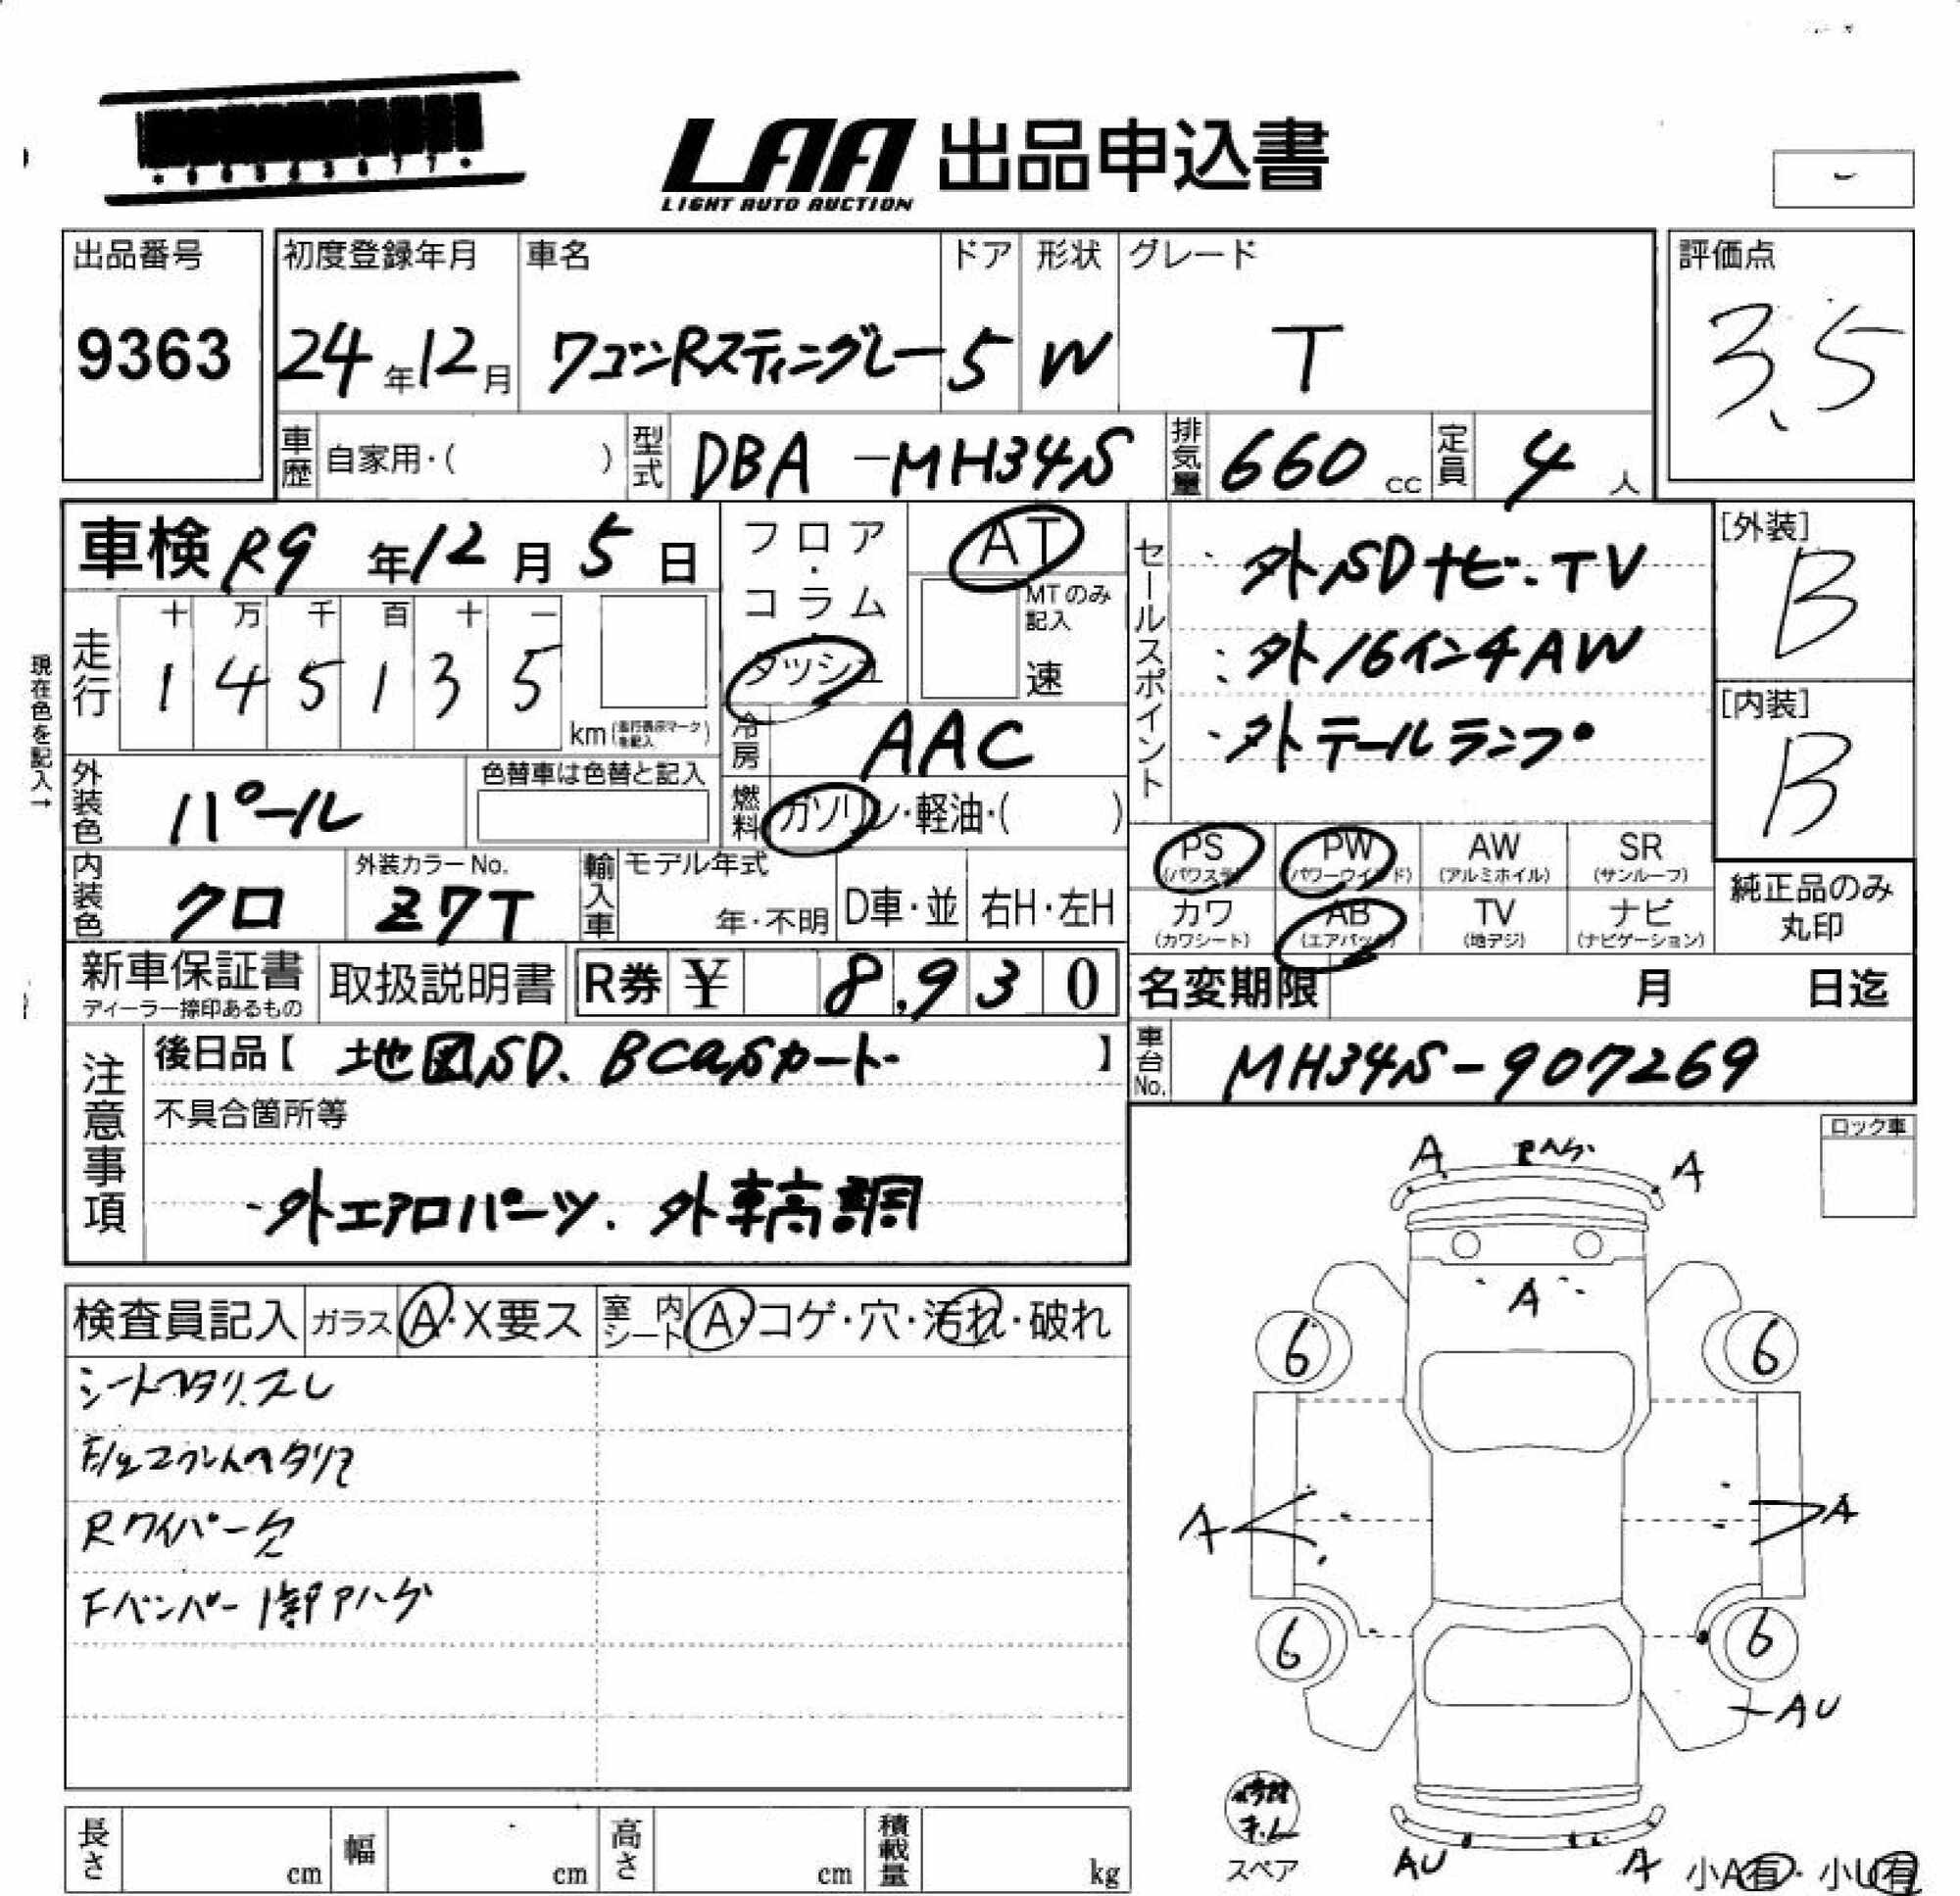 LAA 出品申込書
LIGHT AUTO AUCTION
出品番号
9363
初度登録年月
24年12月
車名
ワゴンRスティングレー
ドア
5
形状
W
グレード
T
評価点
3.5
車歴 自家用・( )
型式 DBA-MH34S
排気量 660 cc
定員 4 人
車検 R9年12月5日
走行
十 万 千 百 十 一
1 4 5 1 3 5
km
現在色を記入→
フロア・コラム・ダッシュ
AT
MTのみ記入
速
冷房 AAC
燃料 ガソリン・軽油・( )
セールスポイント
・外SDナビ・TV
・外16インチAW
・外テールランプ
[外装]
B
[内装]
B
外装色 パール
色替車は色替と記入
内装色 クロ
外装カラーNo.
Z7T
輸入車
モデル年式
年・不明
D車・並
右H・左H
PS (パワステ)
PW (パワーウインド)
AW (アルミホイル)
SR (サンルーフ)
カワ (カワシート)
AB (エアバック)
TV (地デジ)
ナビ (ナビゲーション)
純正品のみ丸印
新車保証書
ディーラー捺印あるもの
取扱説明書
R券 ¥ 8,930
名変期限 月 日迄
注意事項
後日品【 地図SD. BCaSカード 】
車台No. MH34S-907269
不具合箇所等
・外エアロパーツ. 外車高調
ロック車
検査員記入
ガラス A・X要ス
室内シート A・コゲ・穴・汚れ・破れ
シートヘタリ.スレ
Rワイパー欠
Fバンパー下部Pハゲ
A
Pハゲ
A
A
6
6
A
A
6
6
AU
スペア
AU
A
小A有・小U有
長さ cm
幅 cm
高さ cm
積載量 kg